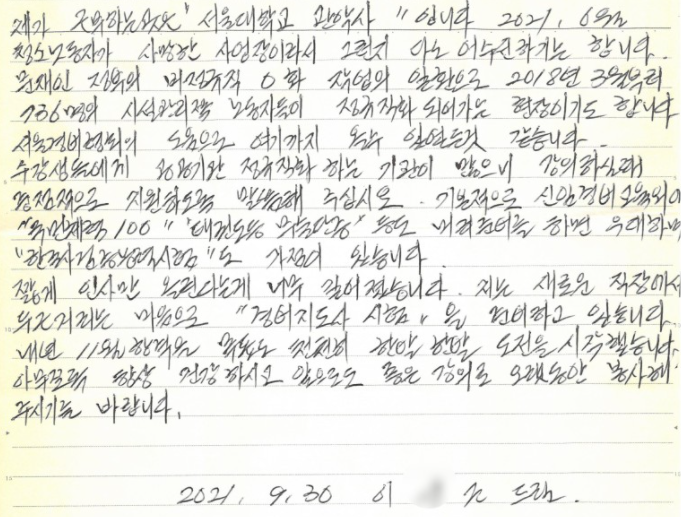 제가 근무하는곳은 "서울대학교 관악사" 입니다 2021. 6월
청소노동자가 사망한 사업장이라서 그런지 아노 어수선하기는 합니다.
문재인 정부의 비정규직 0화 작업의 일환으로 2018년 3월부터
736명의 시설관리직 노동자들이 정규직화 되어가는 현장이기도 합니다
서울경비협회의 도움으로 여기까지 올수 있었든것 같습니다.
수강생들에게 정규직화 하는 기관이 많으니 강의하실때
긍정적으로 지원하도록 말씀해 주십시오. 기본적으로 신임경비교육외에
"국민체력 100" 등도 하면 우대하며
"한국사능력검정시험"도 가점이 있습니다.
짧게 인사만 올린다는게 너무 길어졌습니다. 저는 새로운 직장에서
마음으로 "경비지도사 시험"을 준비하고 있습니다.
내년 11월 합격을 목표로 천천히 한발 한발 도전을 시작했습니다.
아무쪼록 항상 건강하시고 앞으로도 좋은 강의로 오랫동안 봉사해
주시기를 바랍니다.
2021. 9. 30 이 드림.